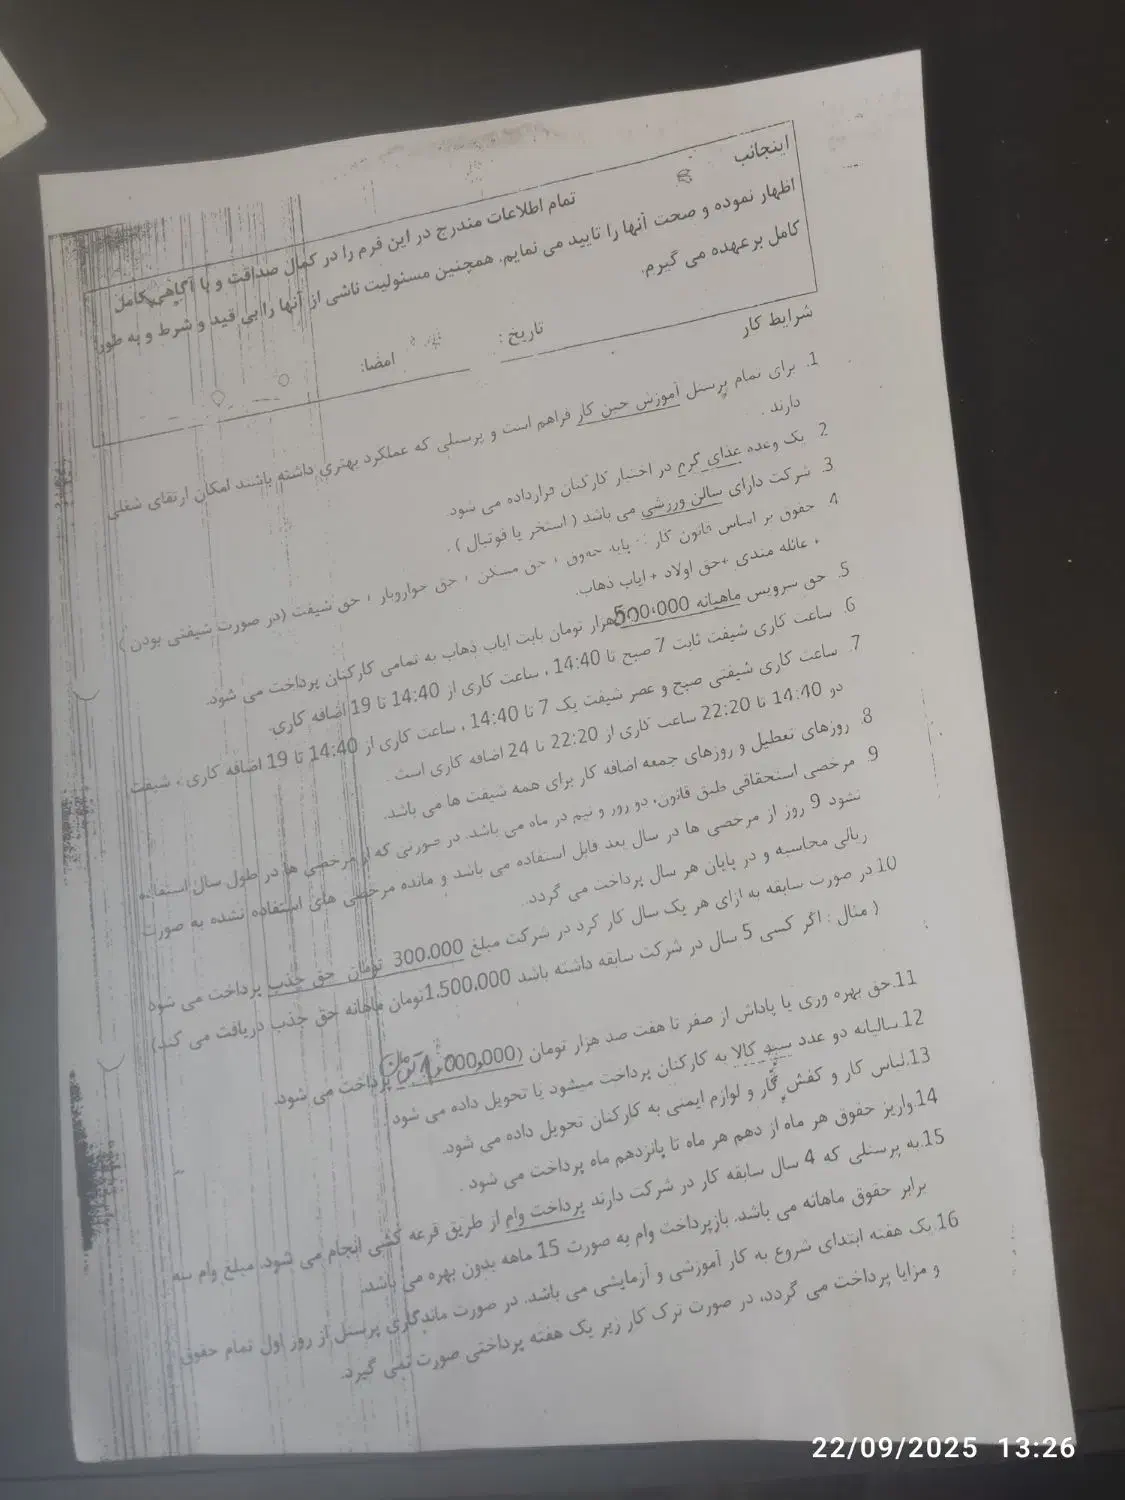 اینجانب
تمام اطلاعات مندرج در این فرم را در کمال صداقت و با آگاهی کامل
اظهار نموده و صحت آنها را تایید می نمایم. همچنین مسئولیت ناشی از آنها را بی قید و شرط و به طور
کامل بر عهده می گیرم.
تاریخ :
امضا:
شرایط کار
1. برای تمام پرسنل آموزش حین کار فراهم است و پرسنلی که عملکرد بهتری داشته باشند امکان ارتقای شغلی
دارند .
2. یک وعده غذای گرم در اختیار کارکنان قرارداده می شود.
3. شرکت دارای سالن ورزشی می باشد ( استخر یا فوتبال ) .
4. حقوق بر اساس قانون کار : پایه حقوق + حق مسکن + حق خواروبار + حق شیفت (در صورت شیفتی بودن )
+ عائله مندی +حق اولاد + ایاب ذهاب.
5. حق سرویس ماهیانه 500،000 هزار تومان بابت ایاب ذهاب به تمامی کارکنان پرداخت می شود.
6. ساعت کاری شیفت ثابت 7 صبح تا 14:40 ، ساعت کاری از 14:40 تا 19 اضافه کاری.
7. ساعت کاری شیفتی صبح و عصر شیفت یک 7 تا 14:40 ، ساعت کاری از 14:40 تا 19 اضافه کاری ، شیفت
دو 14:40 تا 22:20 ساعت کاری از 22:20 تا 24 اضافه کاری است .
8. روزهای تعطیل و روزهای جمعه اضافه کار برای همه شیفت ها می باشد.
9. مرخصی استحقاقی طبق قانون، دو روز و نیم در ماه می باشد. در صورتی که از مرخصی ها در طول سال استفاده
نشود 9 روز از مرخصی ها در سال بعد قابل استفاده می باشد و مانده مرخصی های استفاده نشده به صورت
ریالی محاسبه و در پایان هر سال پرداخت می گردد.
10.در صورت سابقه به ازای هر یک سال کار کرد در شرکت مبلغ 300،000 تومان حق جذب پرداخت می شود
( مثال : اگر کسی 5 سال در شرکت سابقه داشته باشد 1،500،000تومان ماهانه حق جذب دریافت می کند)
11.حق بهره وری یا پاداش از صفر تا هفت صد هزار تومان (1,000,000 تومان) پرداخت می شود.
12.سالیانه دو عدد سبد کالا به کارکنان پرداخت میشود یا تحویل داده می شود
13.لباس کار و کفش کار و لوازم ایمنی به کارکنان تحویل داده می شود.
14.واریز حقوق هر ماه از دهم هر ماه تا پانزدهم ماه پرداخت می شود .
15.به پرسنلی که 4 سال سابقه کار در شرکت دارند پرداخت وام از طریق قرعه کشی انجام می شود. مبلغ وام سه
برابر حقوق ماهانه می باشد. بازپرداخت وام به صورت 15 ماهه بدون بهره می باشد.
16.یک هفته ابتدای شروع به کار آموزشی و آزمایشی می باشد. در صورت ماندگاری پرسنل از روز اول تمام حقوق
و مزایا پرداخت می گردد، در صورت ترک کار زیر یک هفته پرداختی صورت نمی گیرد.
22/09/2025 13:26